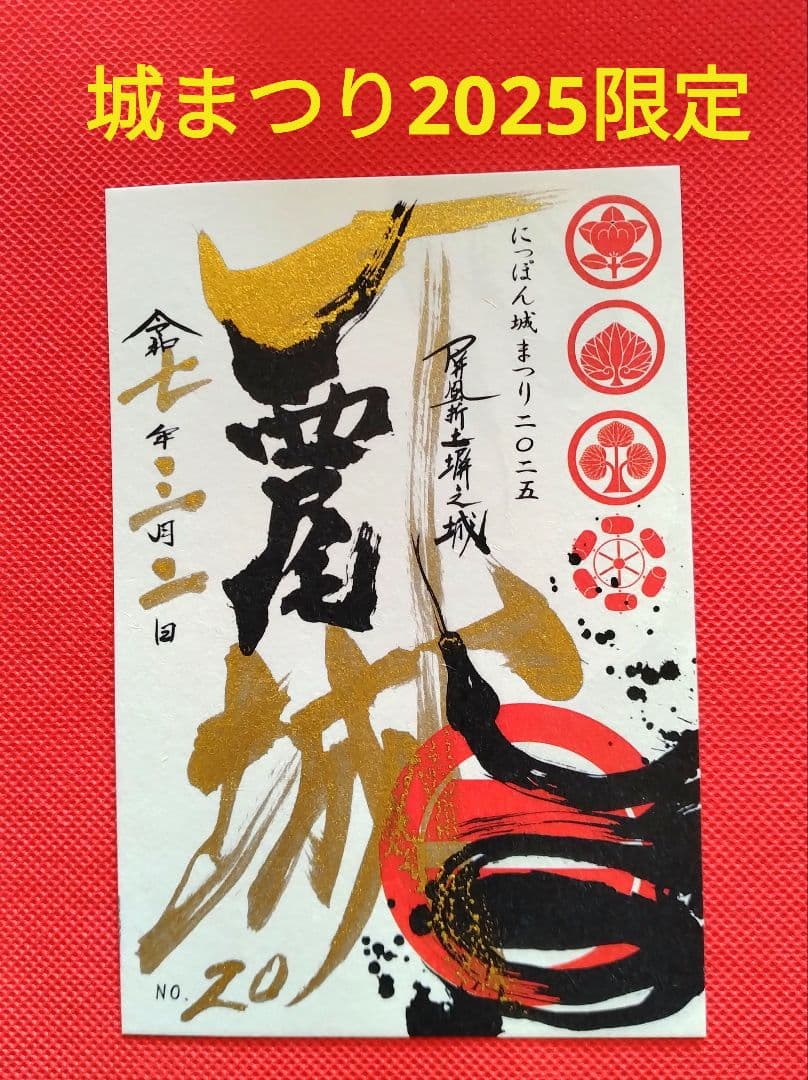 城まつり2025限定
にっぽん城まつり二〇二五
屏風折土塀之城
西尾
城
令和七年三月二日
NO.20